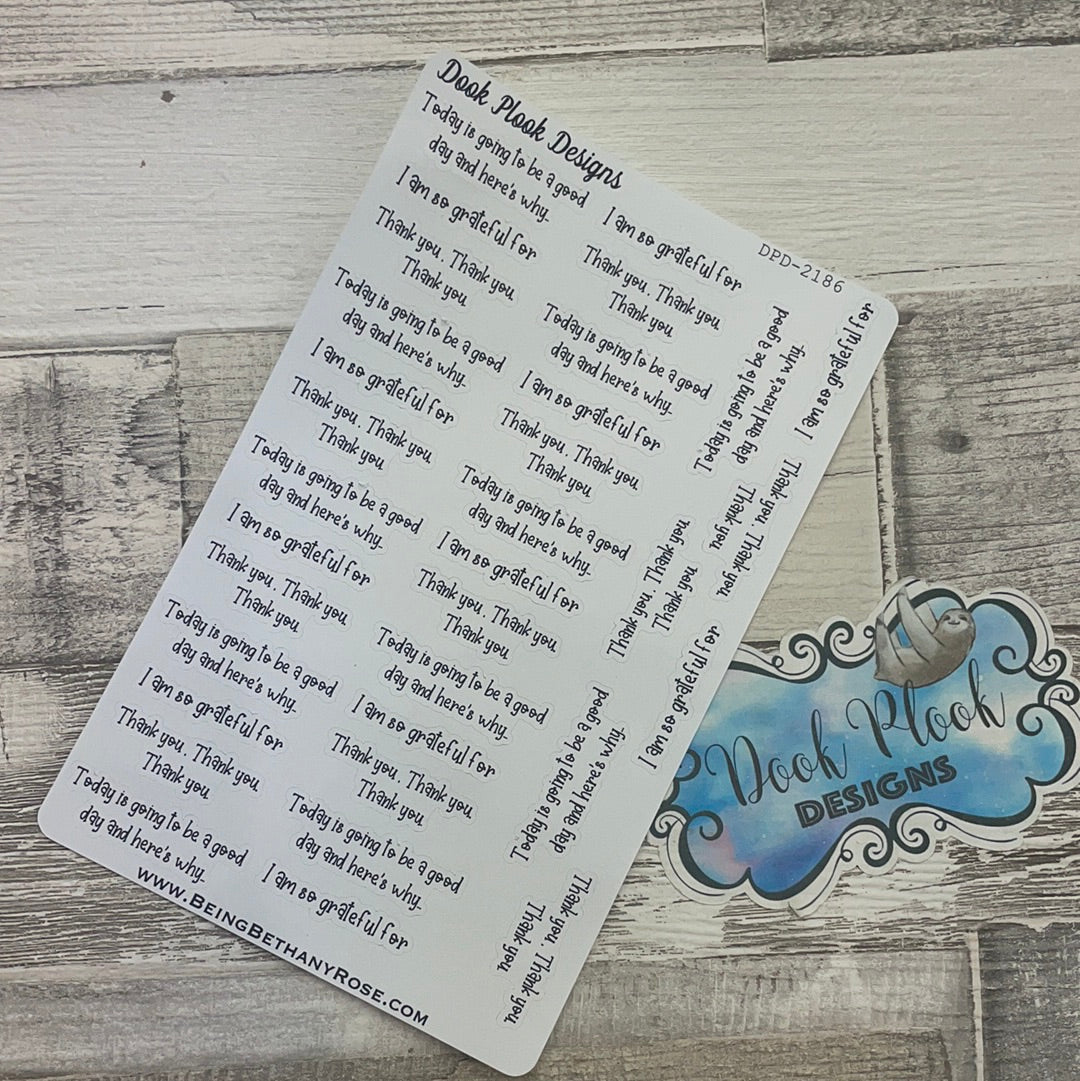 Dook Plook Designs
Today is going to be a good
day and here's why.
I am so grateful for
Thank you. Thank you.
Thank you.
Today is going to be a good
day and here's why.
I am so grateful for
Thank you. Thank you.
Thank you.
Today is going to be a good
day and here's why.
I am so grateful for
Thank you. Thank you.
Thank you.
Today is going to be a good
day and here's why.
I am so grateful for
Thank you. Thank you.
Thank you.
Today is going to be a good
day and here's why.
I am so grateful for
Thank you. Thank you.
Thank you.
Today is going to be a good
day and here's why.
I am so grateful for
Thank you. Thank you.
Thank you.
Today is going to be a good
day and here's why.
I am so grateful for
Thank you. Thank you.
Thank you.
Today is going to be a good
day and here's why.
I am so grateful for
Thank you. Thank you.
Thank you.
Today is going to be a good
day and here's why.
I am so grateful for
DPD-2186
Today is going to be a good
day and here's why.
I am so grateful for
Thank you. Thank you.
Thank you.
Thank you. Thank you.
Thank you.
I am so grateful for
Today is going to be a good
day and here's why.
Thank you. Thank you.
Thank you.
www.BeingBethanyRose.com
Dook Plook
DESIGNS